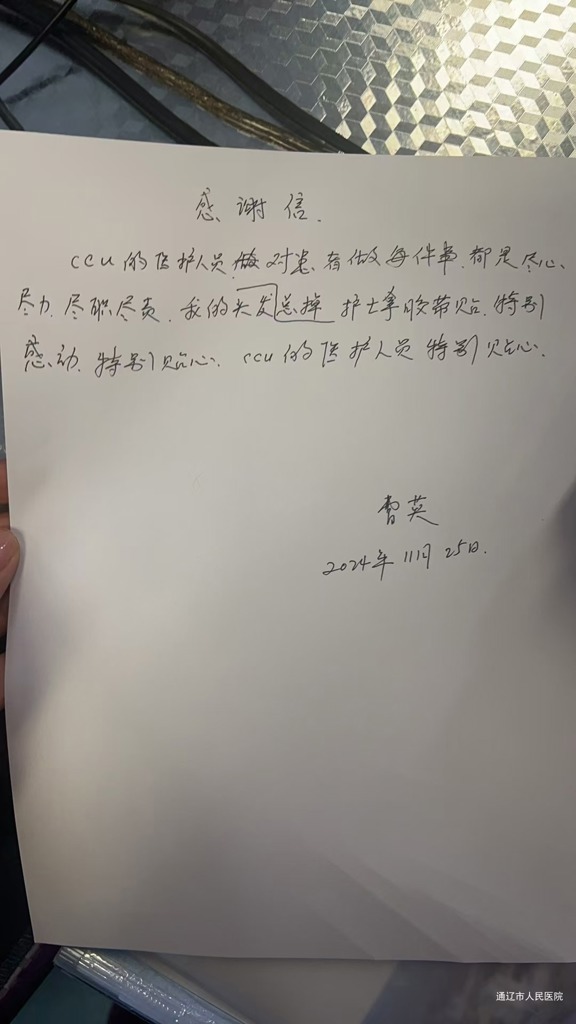 感谢信.
ccu的医护人员对患者做每件事.都是尽心、
尽力.尽职尽责.我的头发总掉 护士拿胶带贴.特别
感动.特别贴心. ccu的医护人员特别贴心.
曹英
2024年11月25日.
通辽市人民医院